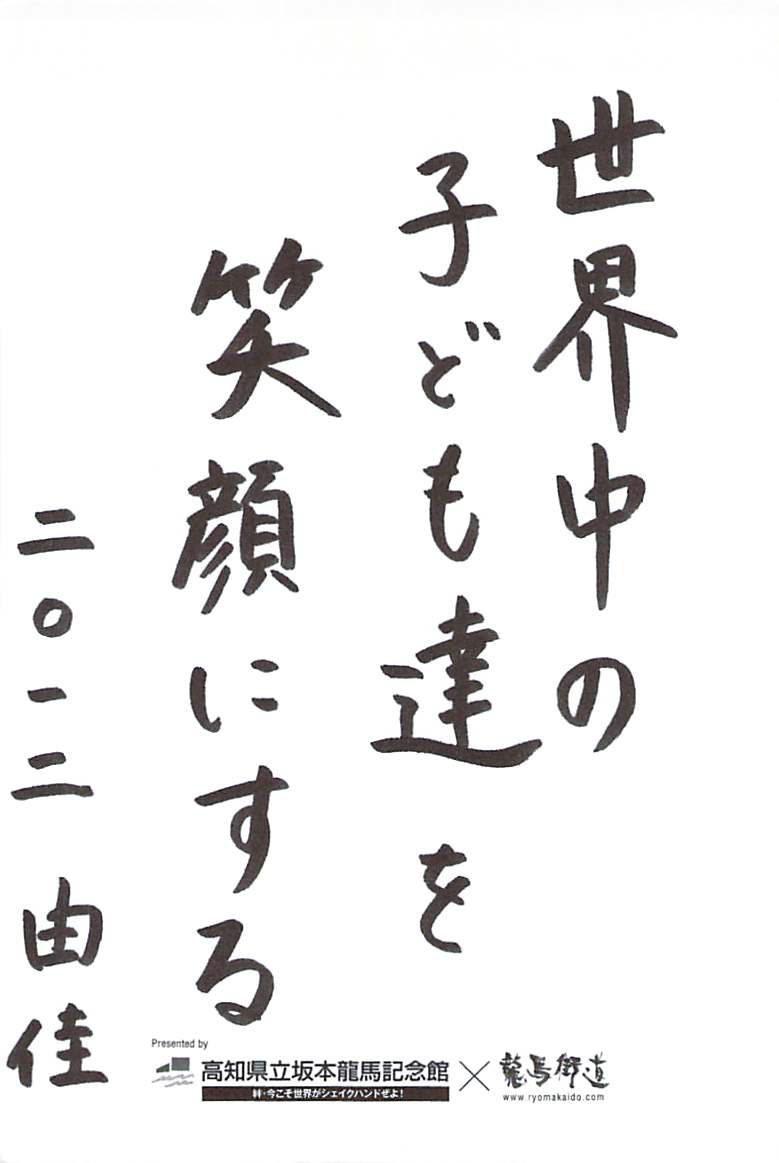 世界中の
子ども達を
笑顔にする
二〇一二 由佳
Presented by
高知県立坂本龍馬記念館
絆・今こそ世界がシェイクハンドぜよ!
×
龍馬街道
www.ryomakaido.com